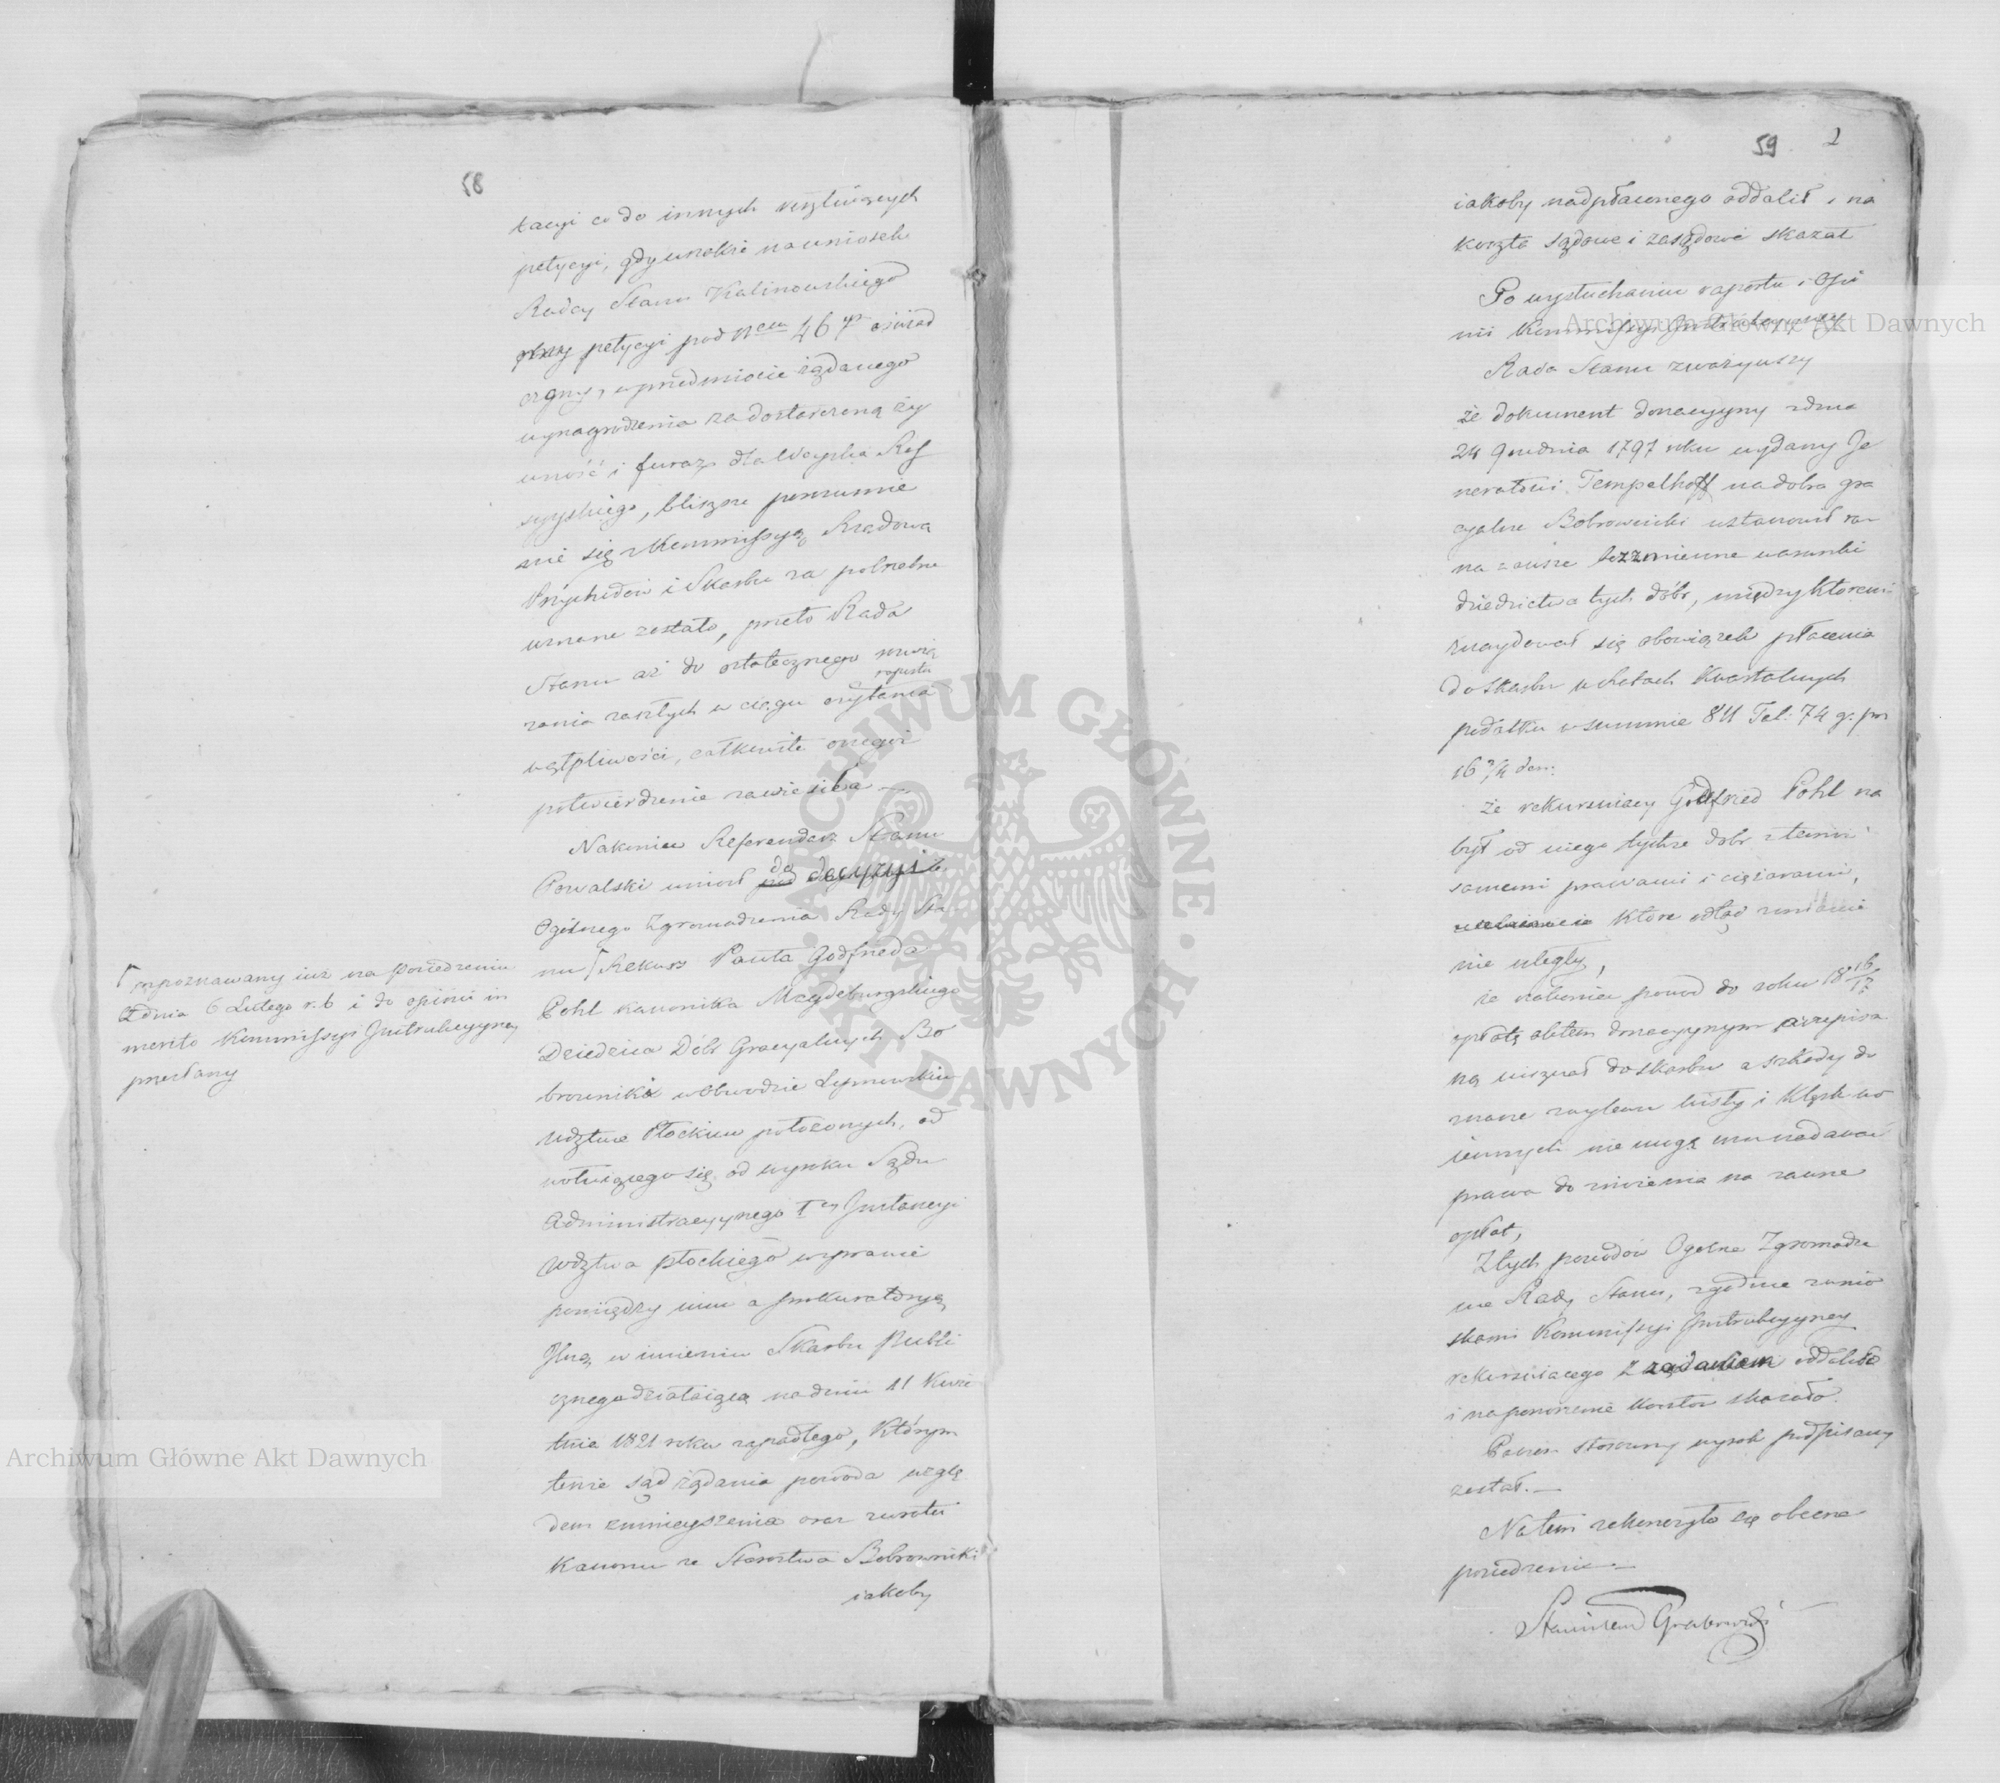 58
tacyi co do innych resztuiących
petycyi, gdy wszelkie na wniosek
Radcy Stanu Kalinowskiego
przy petycyi pod Nrem 46ym oświad
czony, w przedmiocie żądanego
wynagrodzenia za dostarczoną ży
wność i furaż dla Woyska Ros
syyskiego, bliższe porozumie
nie się z Kommissyą Rządową
Przychodów i Skarbu za potrzebne
uznane zostało, przeto Rada
Stanu aż do ostatecznego rozwią
zania zaszłych w ciągu czytania raportu
wątpliwości, całkowite onegoż
potwierdzenie zawiesiła —
Nakoniec Referendarz Stanu
Kowalski wniósł pod do decyzyi
Ogólnego Zgromadzenia Rady Sta
nu Rekurs Pawła Godfrieda
Pohl kanonika Magdeburgskiego
Dziedzica Dóbr Gracyalnych Bo
browniki w Obwodzie Lipnowskim
Wdztwie Płockim położonych, od
wołuiącego się od wyroku Sądu
Administracyynego 1ey Instancyi
Wdztwa Płockiego w sprawie
pomiędzy nim a prokuratoryą
Jlną w imieniu Skarbu Publi
cznego działaiącą na dniu 11 Kwie
tnia 1821 roku zapadłego, którym
tenże sąd żądania powoda wzglę
dem zmnieyszenia oraz zwrotu
Kanonu ze Starostwa Bobrowniki
iakoby
rozpoznawany iuż na posiedzeniu
z dnia 6 Lutego r. b. i do opinii in
merito Kommissyi Instrukcyyney
przesłany
59 2
iakoby nadpłaconego oddalił i na
koszta sądowe i zasądowe skazał
Po wysłuchaniu raportu i Opi
nii Kommissyi Instrukcyyney
Rada Stanu zważywszy
że dokument donacyyny z dnia
24 Grudnia 1797 roku wydany Je
nerałowi Tempelhoff na dobra gra
cyalne Bobrowniki ustanowił raz
na zawsze bezzmienne warunki
dziedzictwa tych dóbr, między któremi
znaydował się obowiązek płacenia
do skarbu w Ratach Kwartalnych
podatku w summie 811 Tal: 74 g. pr.
16 3/4 den:
że rekursuiący Godfried Pohl na
był od niego tychże dobr z temi
samemi prawami i ciężarami,
które odtąd zmianie
nie uległy,
że nakoniec powod do roku 1816/17
opłatę aktem donacyynym przepisa
ną uiszczał do skarbu a szkody do
znane wylewu wisły i klęsk wo
iennych nie mogą mu nadawać
prawa do zniżenia na zawsze
opłat,
Z tych powodów Ogólne Zgromadze
nie Rady Stanu, zgodnie z wnio
skami Kommissyi Instrukcyyney
rekursuiącego z żądaniem oddaliło
i na ponoszenie kosztów skazało.
Poczem stosowny wyrok podpisany
został. —
Natem zakończyło się obecne
posiedzenie —
Stanisław Grabowski
Archiwum Główne Akt Dawnych
Archiwum Główne Akt Dawnych
ARCHIWUM GŁÓWNE
AKT DAWNYCH